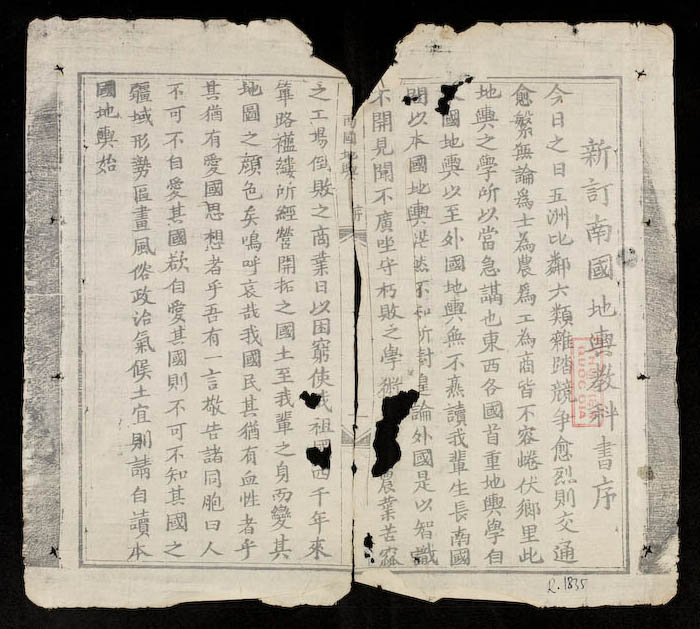 新訂南國地輿教科書序
今日之日五洲比鄰六類雜踏競爭愈烈則交通
愈繁無論爲士為農爲工為商皆不容蜷伏鄉里此
地輿之學所以當急謀也東西各國首重地輿學自
國地輿以至外國地輿無不兼讀我輩生長南國
問以本國地輿茫然不知所對遑論外國是以智識
不開見聞不廣坐守朽敗之學 農業苦窳
南國地輿 序
之工場倒敗之商業日以困窮使我祖國四千年來
篳路襤縷所經營開拓之國土至我輩之身而變其
地圖之顏色矣嗚呼哀哉我國民其猶有血性者乎
其猶有愛國思想者乎吾有一言敬告諸同胞曰人
不可不自愛其國欲自愛其國則不可不知其國之
疆域形勢區畫風俗政治氣候土宜則請自讀本
國地輿始
QUOC GIA
R.1835